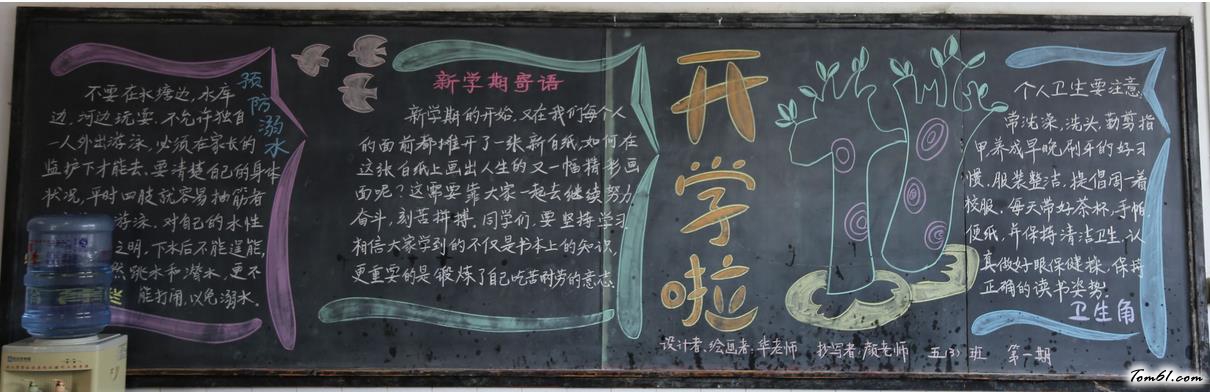 预防溺水
不要在水塘边,水库
边,河边玩耍.不允许独自
一人外出游泳,必须在家长的
监护下才能去.要清楚自己的身体
状况,平时四肢就容易抽筋者
游泳.对自己的水性
之明,下水后不能逞能,
然跳水和潜水,更不
能打闹,以免溺水.
新学期寄语
新学期的开始,又在我们每个人
的面前都摊开了一张新白纸.如何在
这张白纸上画出人生的又一幅精彩画
面呢?这需要靠大家一起去继续努力
奋斗,刻苦拼搏.同学们,要坚持学习
相信大家学到的不仅是书本上的知识,
更重要的是锻炼了自己吃苦耐劳的意志.
开学啦
个人卫生要注意
常洗澡,洗头,勤剪指
甲.养成早晚刷牙的好习
惯.服装整洁.提倡周一着
校服.每天带好茶杯,手帕
便纸,并保持清洁卫生.认
真做好眼保健操,保持
正确的读书姿势.
卫生角
设计者,绘画者:华老师 抄写者:颜老师 五(3)班 第一期
Tom61.com